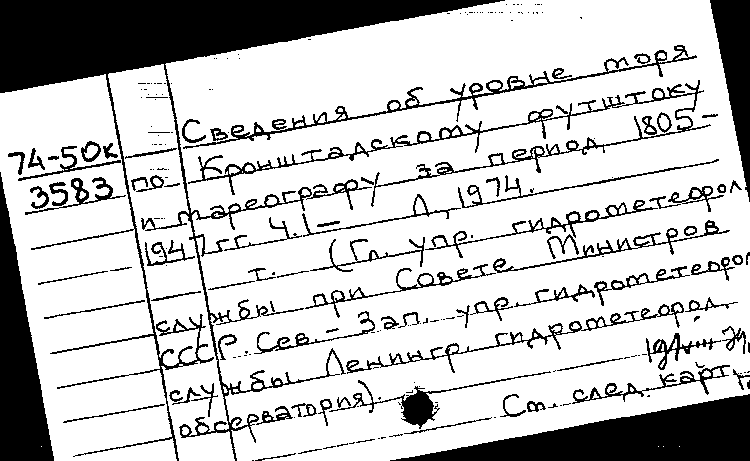 Сведения об уровне моря
74-50к
3583
по Кронштадскому футштоку
и мареографу за период 1805-
1947 гг. Ч. 1- Л, 1974.
т. (Гл. упр. гидрометеорол
службы при Совете Министров
СССР. Сев.- Зап. упр. гидрометеорол
службы Ленингр. гидрометеорол.
обсерватория).
См. след. карт.